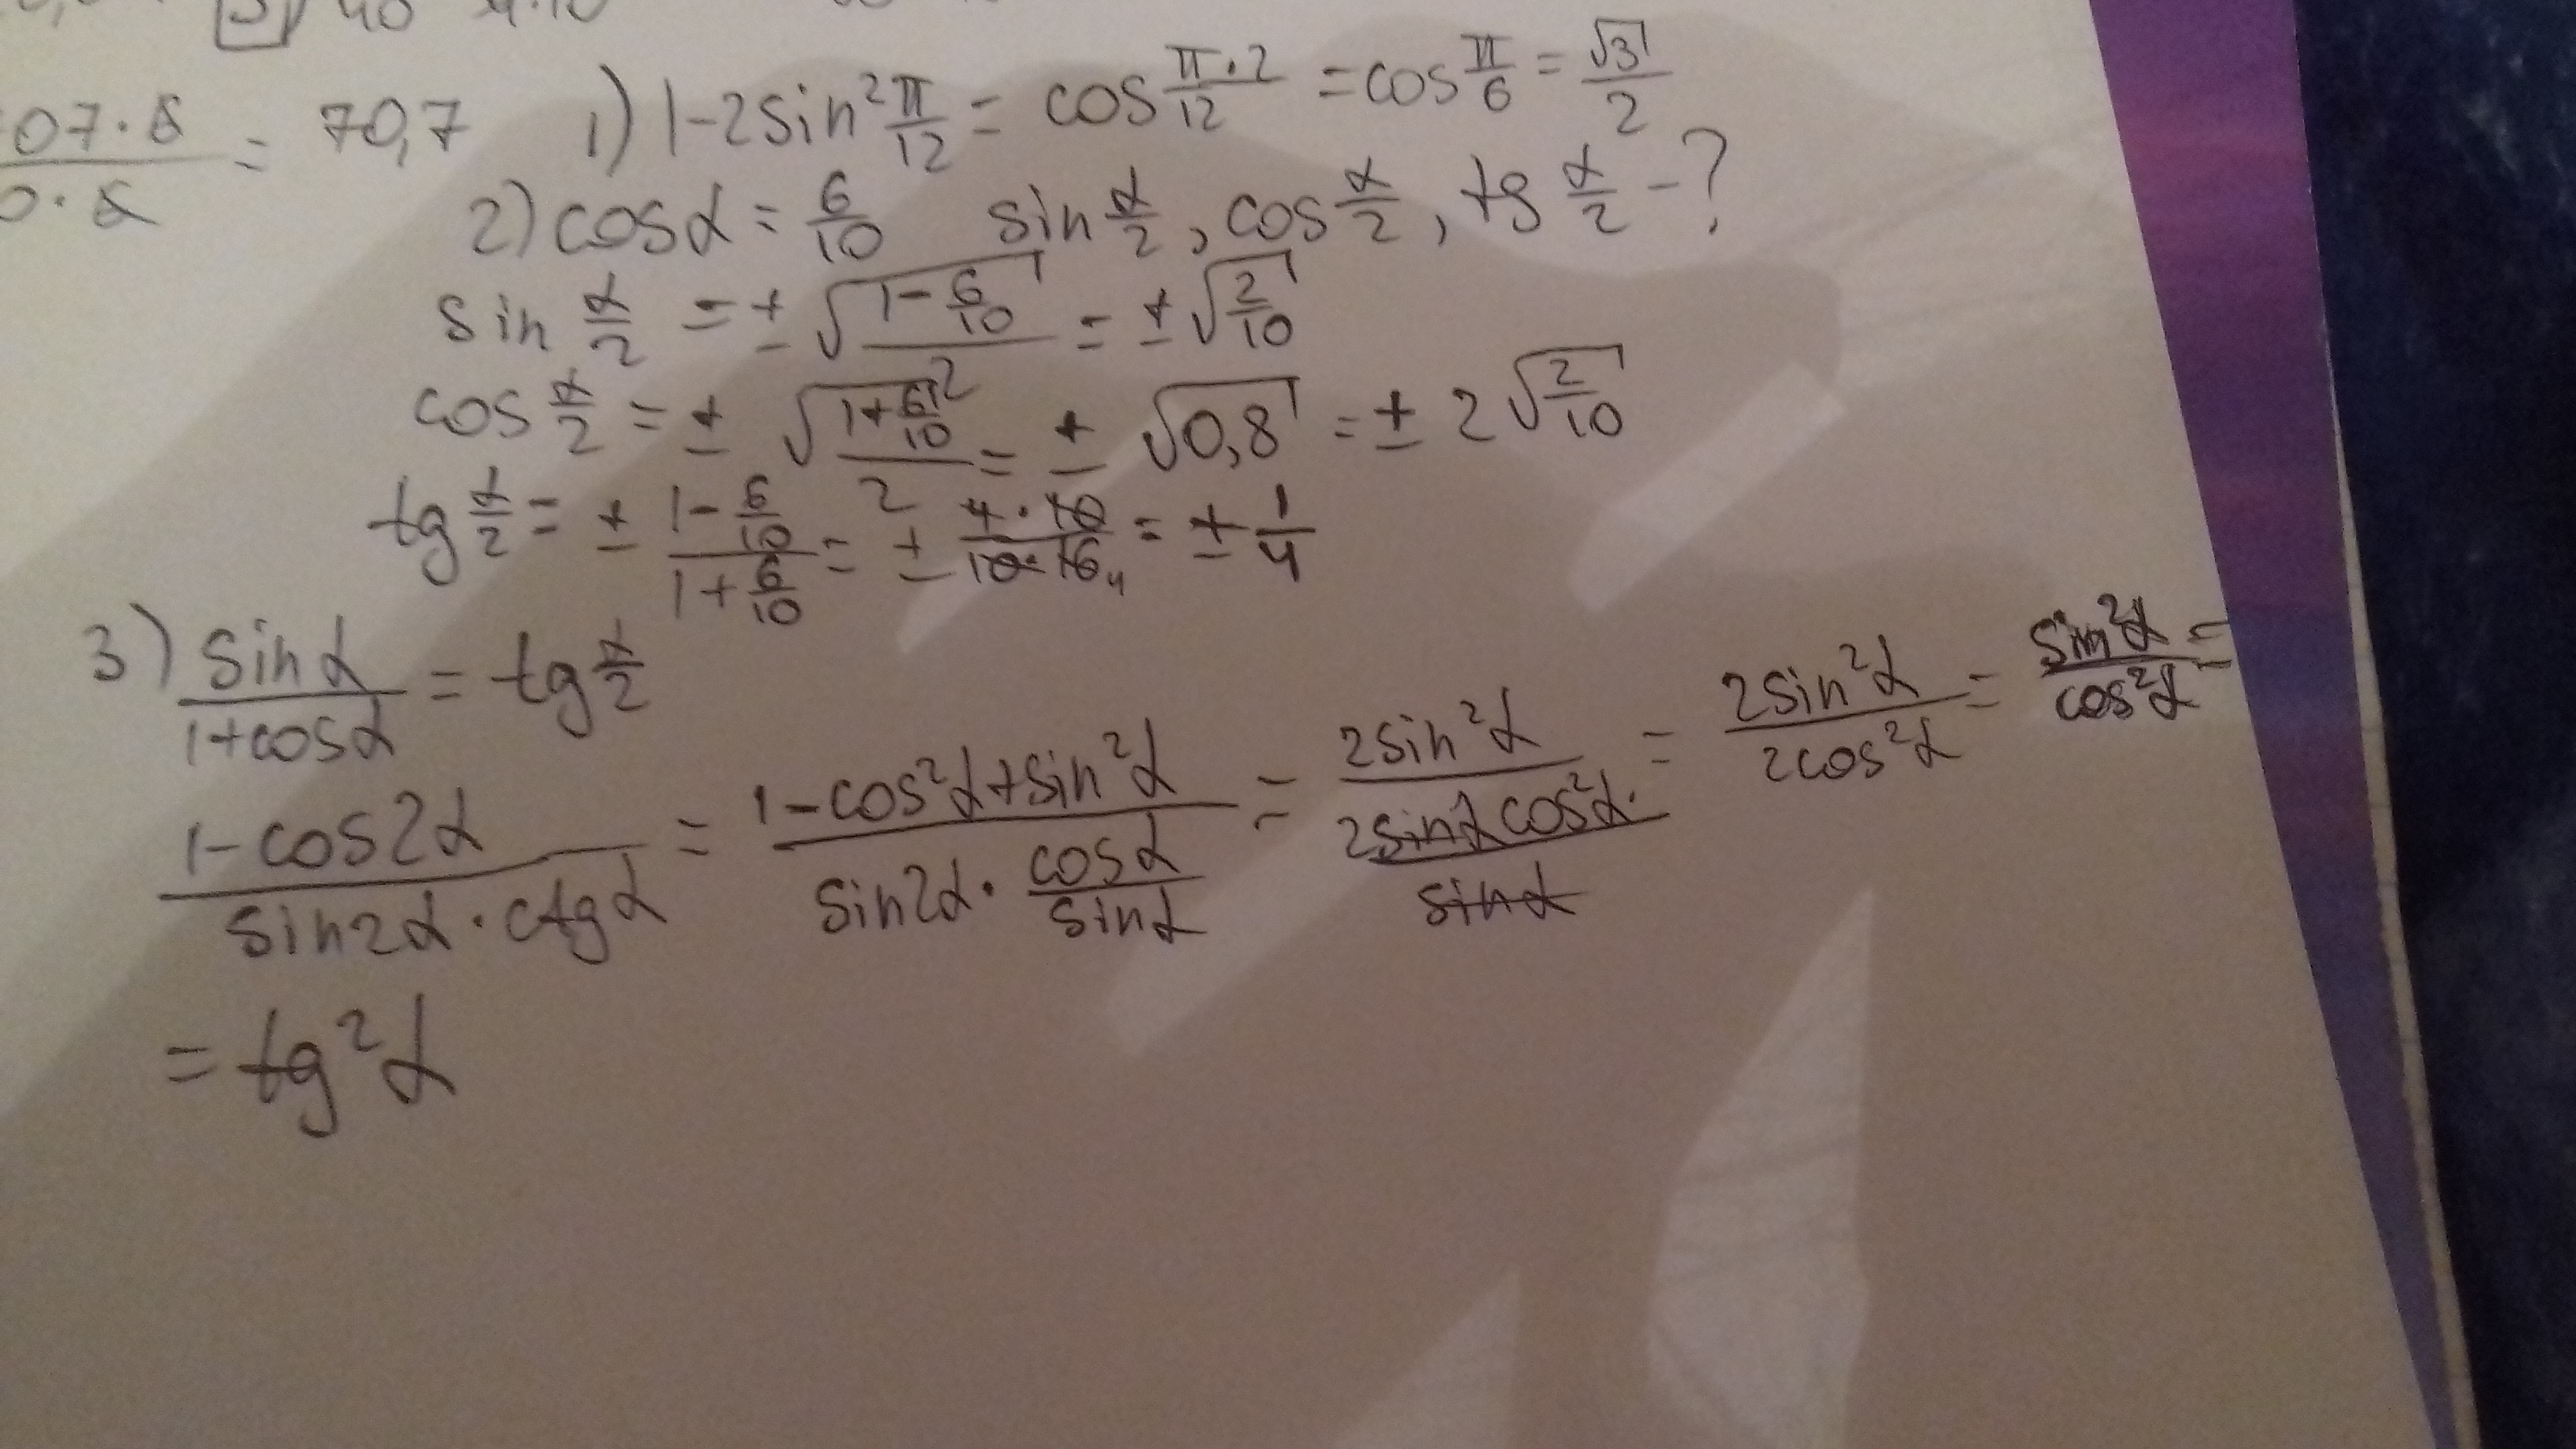 07·5/0·5 = 70,7
1) 1-2sin²π/12 = cos π·2/12 = cos π/6 = √3/2
2) cosα = 6/10 sin α/2, cos α/2, tg α/2 - ?
sin α/2 = ± √(1-6/10)/2 = ± √2/10
cos α/2 = ± √(1+6/10)/2 = ± √0,8 = ± 2√2/10
tg α/2 = ± (1-6/10)/(1+6/10) = ± 4·10/10·16 4 = ± 1/4
3) sinα/(1+cosα) = tg α/2
(1-cos2α)/(sin2α·ctgα) = (1-cos²α+sin²α)/(sin2α·cosα/sinα) = 2sin²α/(2sinαcos²α/sinα) = 2sin²α/2cos²α = sin²α/cos²α =
= tg²α